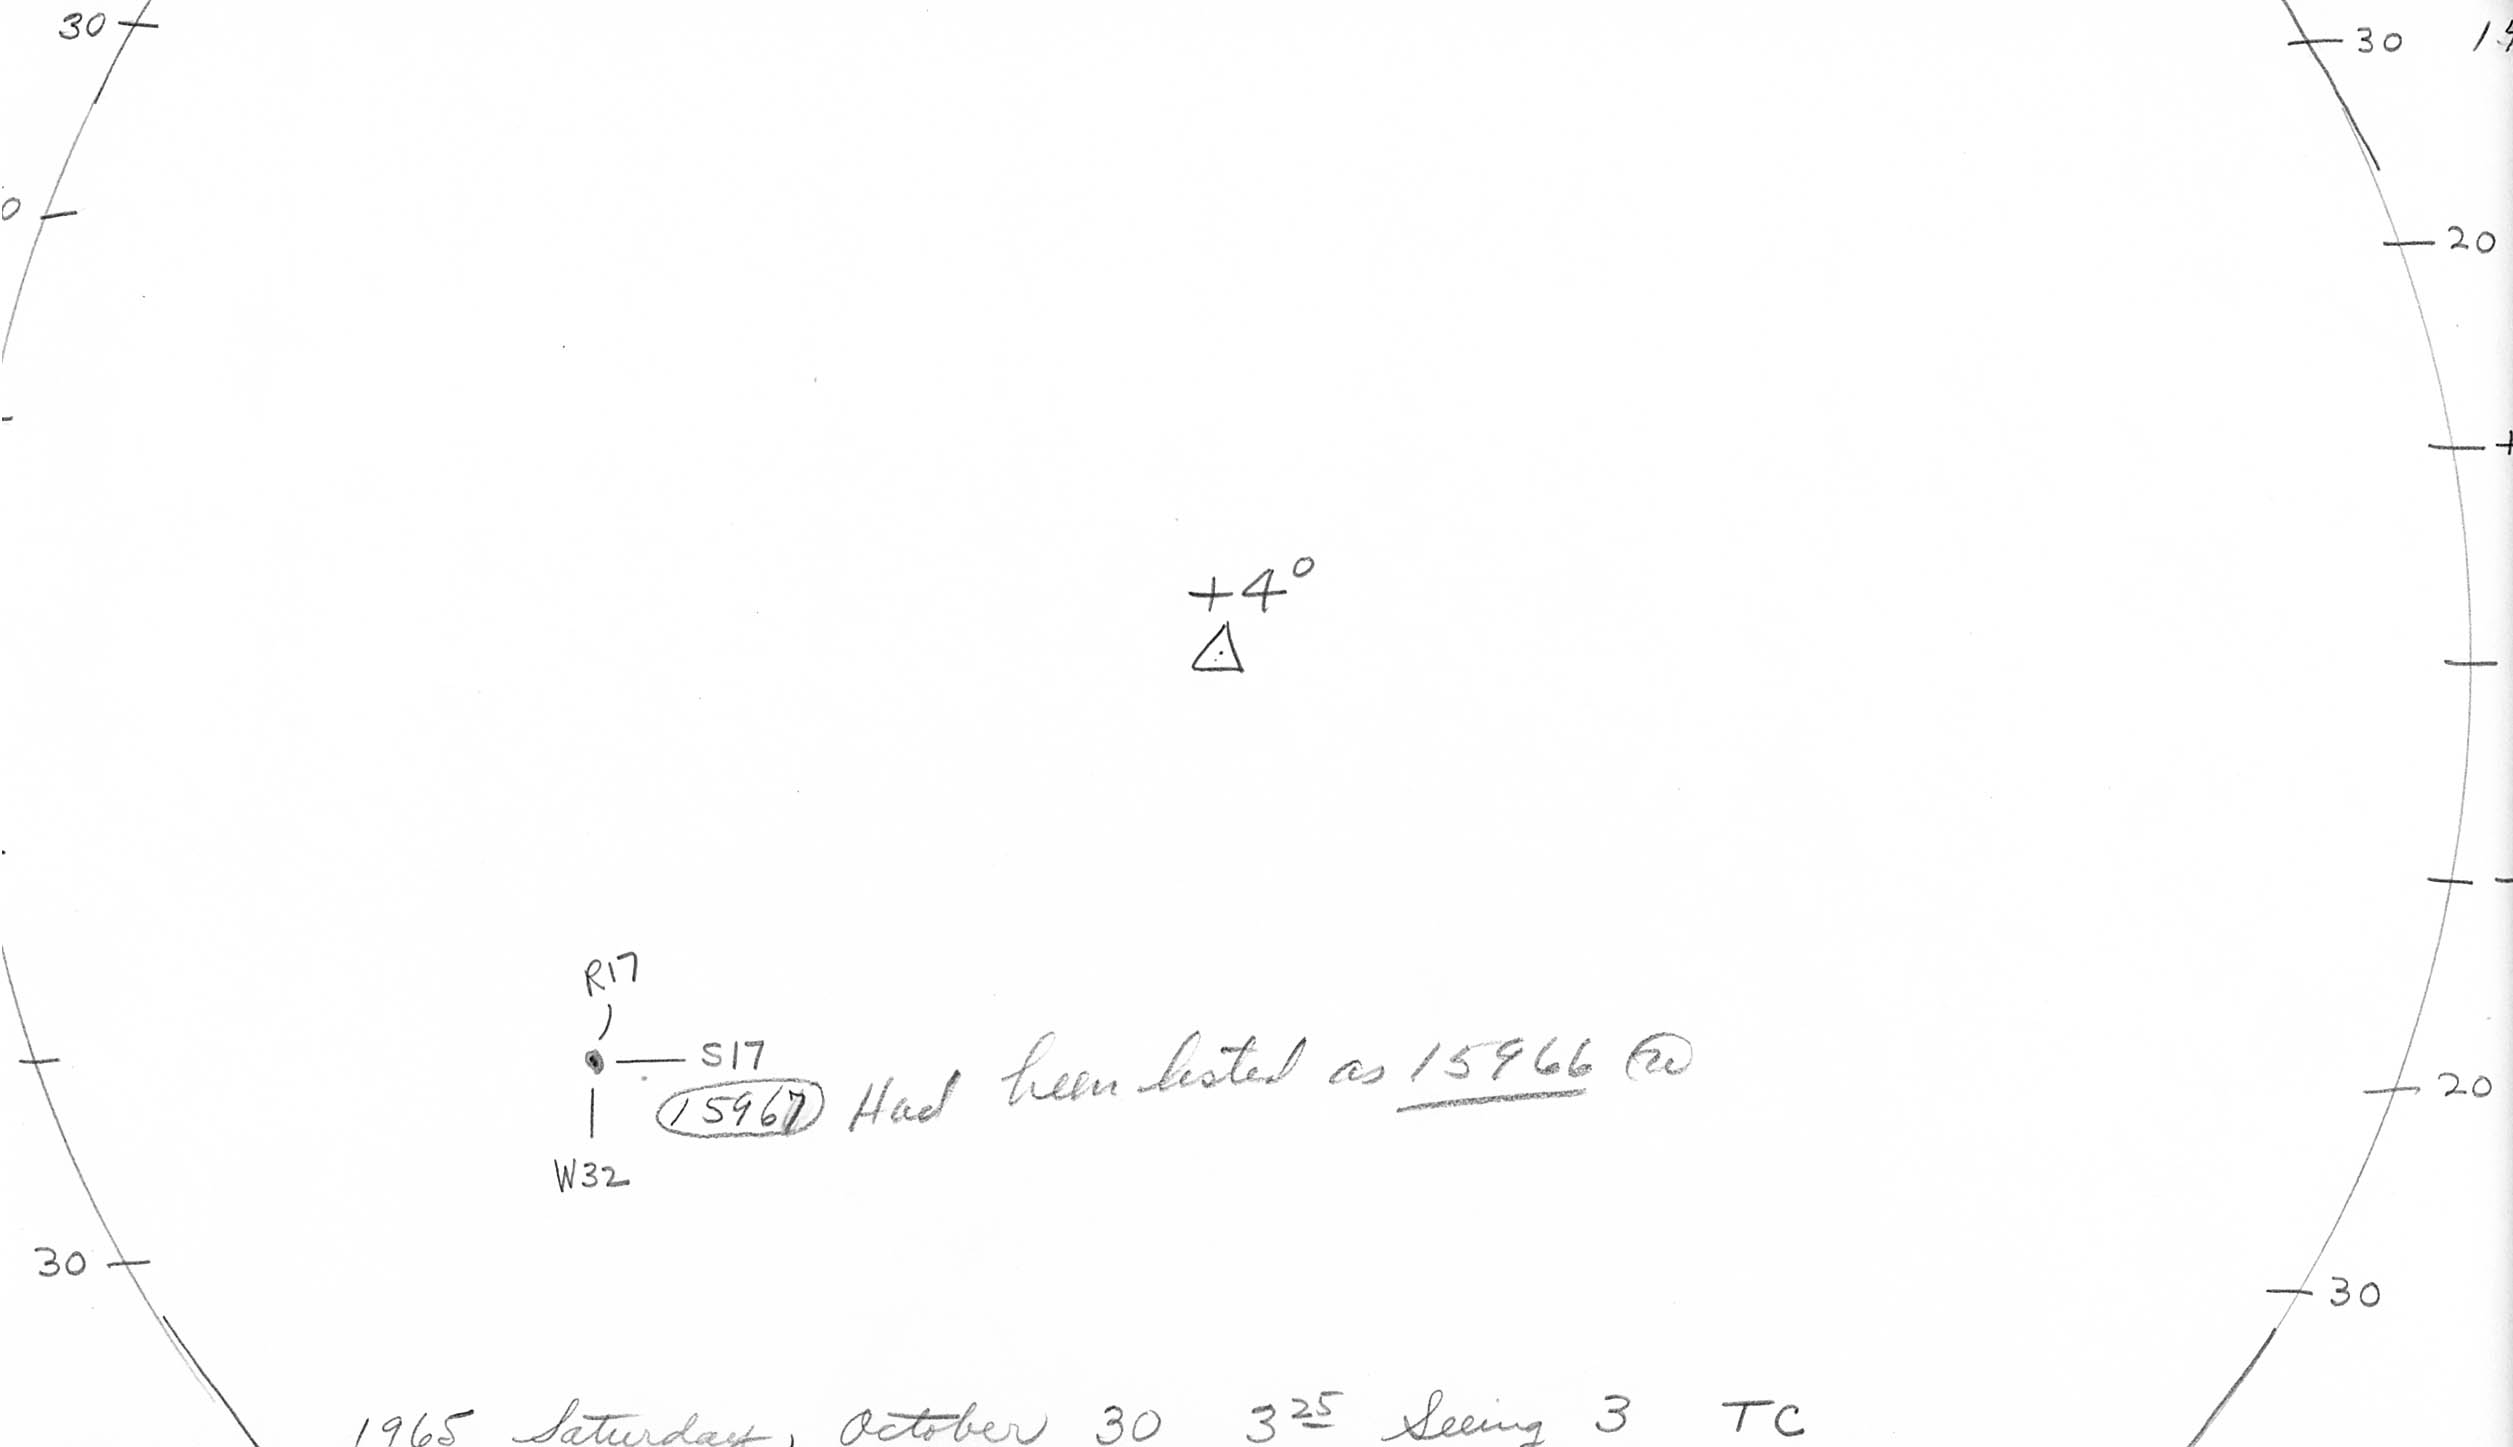 30
30
20
+4°
R17
S17
15967 Had been listed as 15966
W32
20
30
30
1965 Saturday, October 30 3 25 Seeing 3 TC